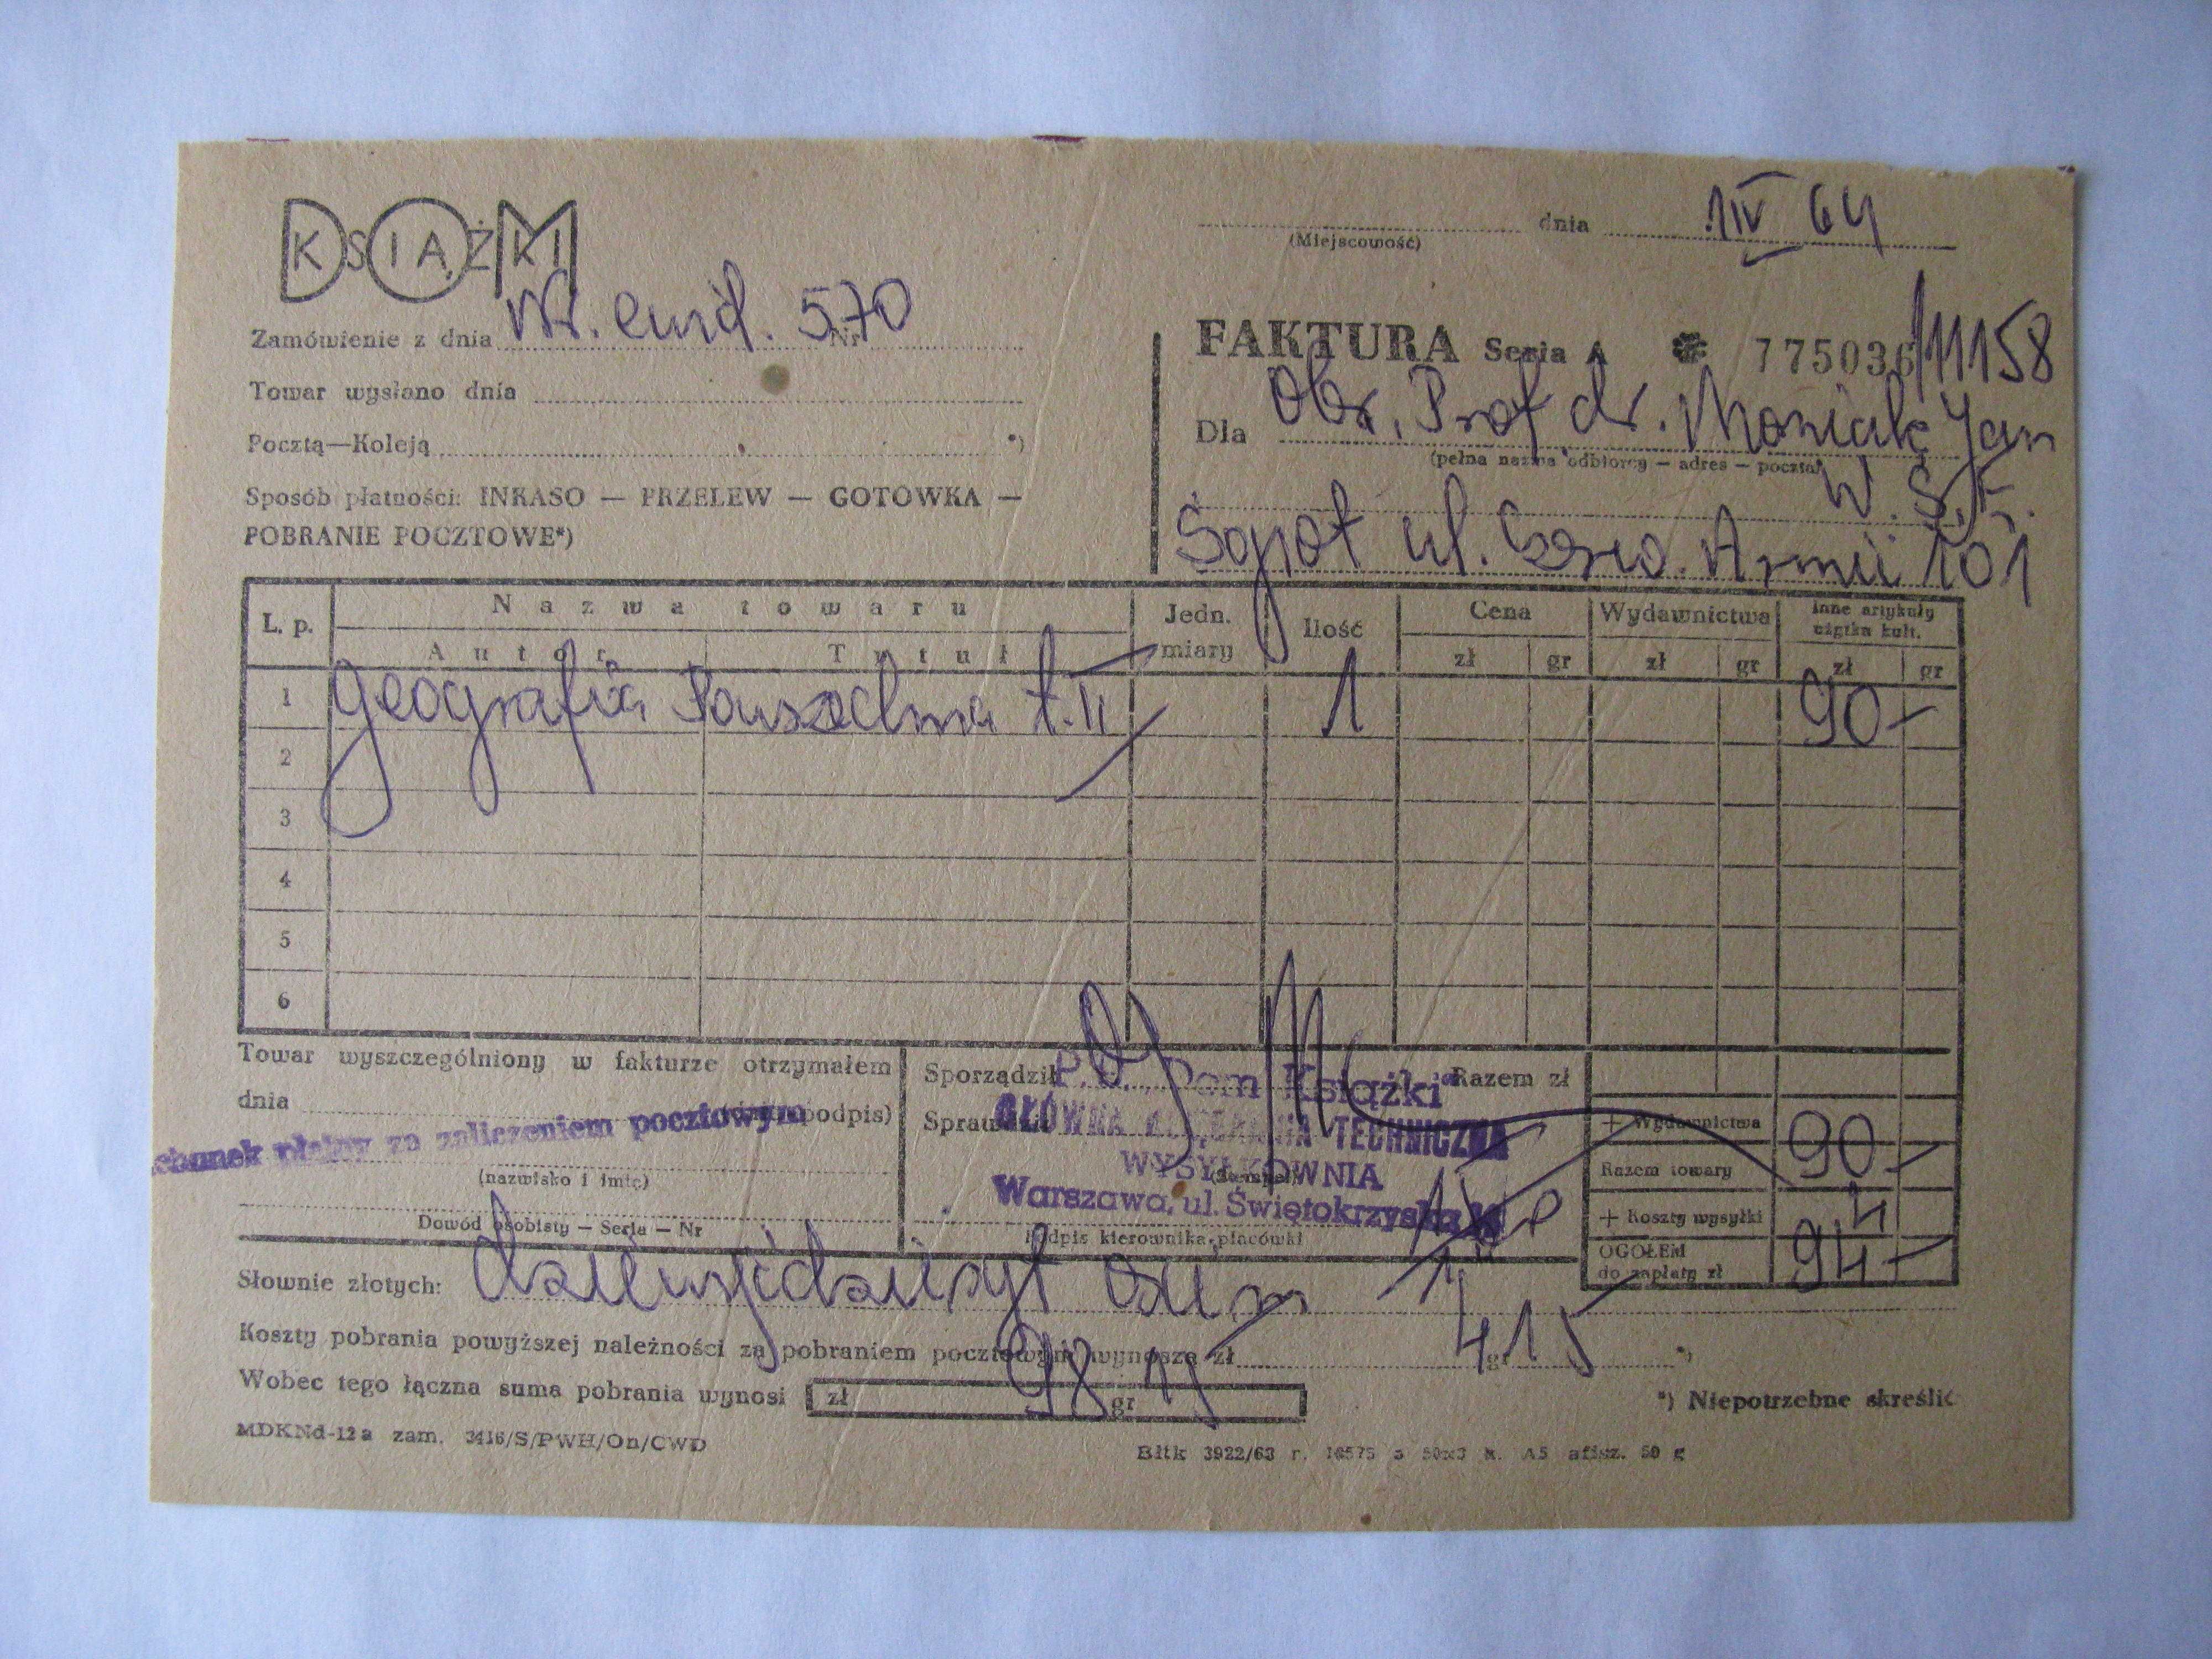 DOM
KSIĄŻKI
(Miejscowość) dnia 1 IV 64
Zamówienie z dnia Nr. ewid. 570 Nr
Towar wysłano dnia
Pocztą—Koleją *)
Sposób płatności: INKASO — PRZELEW — GOTOWKA —
POBRANIE POCZTOWE*)
FAKTURA Seria A 775036/11158
Dla Ob. Prof dr. Moniak Jan
(pełna nazwa odbiorcy — adres — poczta)
W. S. E.
Sopot ul. Czerw. Armii 101
L. p. Nazwa towaru Jedn. miary Ilość Cena Wydawnictwa Inne artykuły użytku kult.
Autor Tytuł zł gr zł gr zł gr
1 Geografia Powszechna t. II 1 90-
2
3
4
5
6
Towar wyszczególniony w fakturze otrzymałem
dnia (podpis)
płatny za zaliczeniem pocztowym
(nazwisko i imię)
Dowód osobisty — Seria — Nr
Sporządził
P.P. „Dom Książki”
GŁÓWNA KSIĘGARNIA TECHNICZNA
WYSYŁKOWNIA
(Stempel)
Warszawa, ul. Świętokrzyska
Podpis kierownika placówki
Razem zł
+ Wydawnictwa
Razem towary 90-
+ Koszty wysyłki 4
OGÓŁEM
do zapłaty zł 94-
Słownie złotych: dziewięćdziesiąt osiem
Koszty pobrania powyższej należności za pobraniem pocztowym wynoszą zł 4 gr 15 *)
Wobec tego łączna suma pobrania wynosi zł 98 gr 15
*) Niepotrzebne skreślić
MDKNd-12a zam. 3416/S/PWH/On/CWD
Błtk 3922/63 r. A5 afisz. 50 g